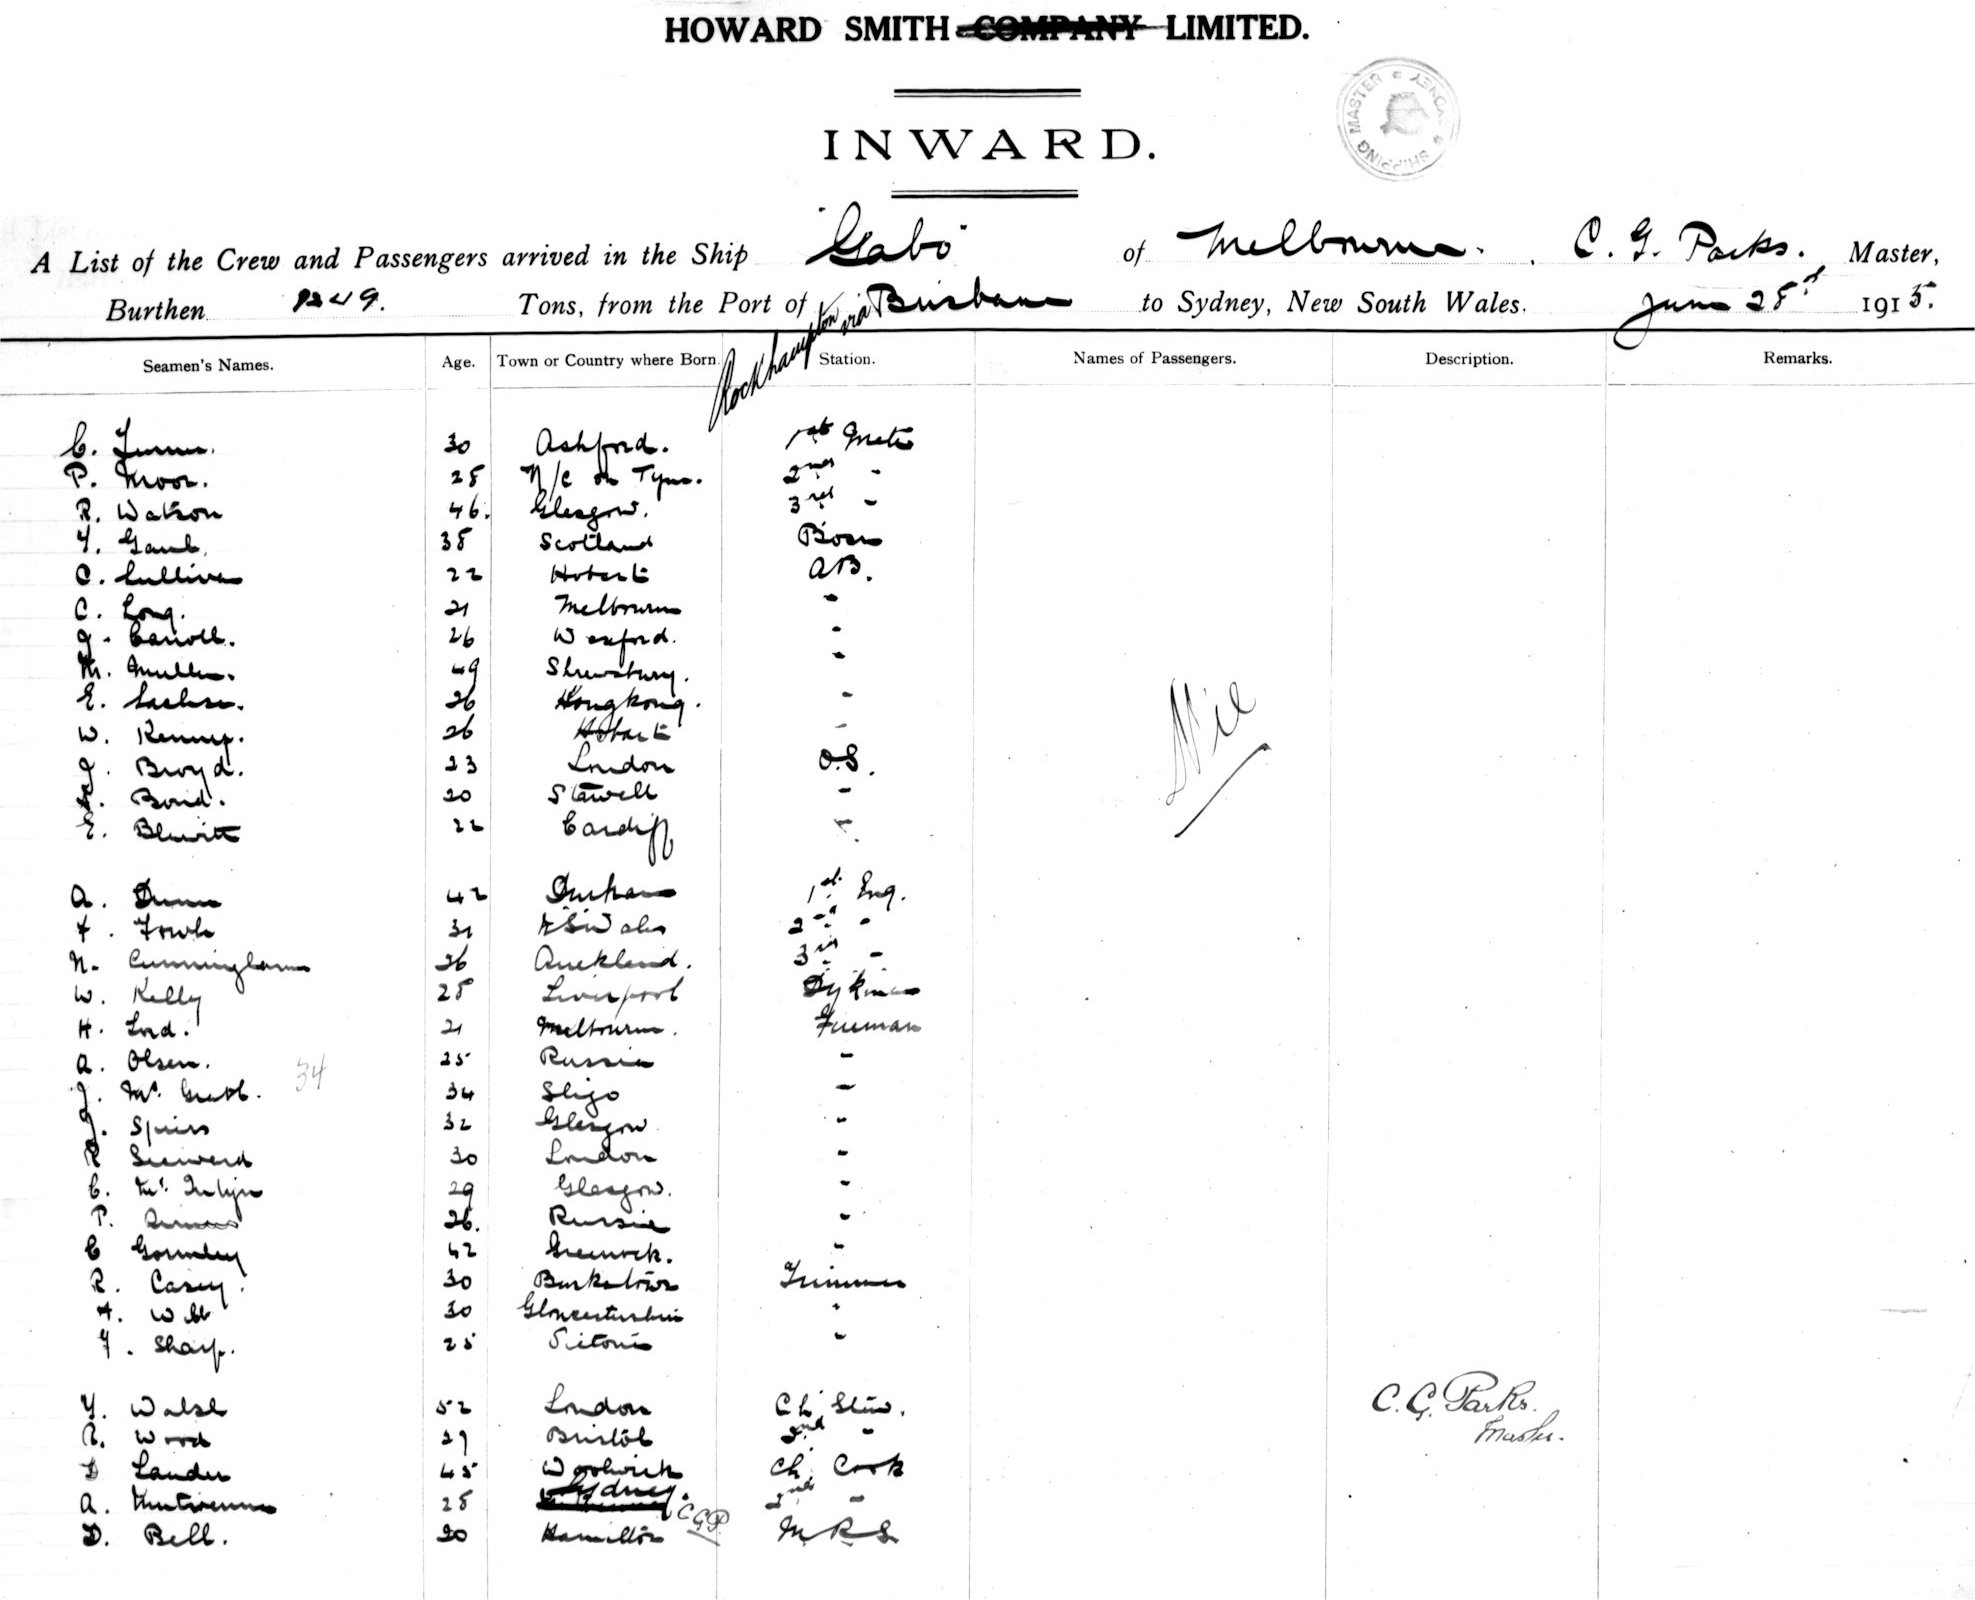 HOWARD SMITH COMPANY LIMITED.
SHIPPING MASTER SYDNEY
INWARD.
A List of the Crew and Passengers arrived in the Ship "Gabo" of Melbourne. C. G. Parks. Master,
Burthen Tons, from the Port of Rockhampton via Brisbane to Sydney, New South Wales. June 28th 1915.
Seamen's Names. Age. Town or Country where Born. Station. Names of Passengers. Description. Remarks.
30 Ashford. 1st Mate
P. Moor. 28 N/C on Tyne. 2nd "
R. Watson 46. Glasgow. 3rd "
38 Scotland Bosn
C. Sullivan 22 Hobart AB.
C. Long. 21 Melbourne "
J. Carroll. 26 Wexford. "
M. Mullen. 49 Shrewsbury. "
E. 26 Hongkong. "
W. Kenny. 26 Hobart "
J. Broyd. 23 London O.S.
Bond. 20 Stawell "
E. Blewitt 22 Cardiff "
Nil
A. Dunn 42 Durham 1st Eng.
F. Fowle 31 N S Wales 2nd "
N. Cunningham 26 Auckland. 3rd "
W. Kelly 28 Liverpool Dykman
H. Lord. 21 Melbourne. Fireman
A. Olsen. 25 Russia "
J. 34 34 Sligo "
J. Spiers 32 Glasgow "
R 30 London "
C. 29 Glasgow. "
P. 26. Russia "
C Gormley 42 Greenock. "
R. Casey. 30 Trimmer
Webb 30 Gloucestershire "
Sharp. 25 "
Walsh 52 London Ch Stew.
R. Wood 29 Bristol 2nd "
Lander 45 Woolwich Ch. Cook
A. 28 Sydney. C G P 2nd "
D. Bell. 20 Hamilton M R S
C. G. Parks.
Master.